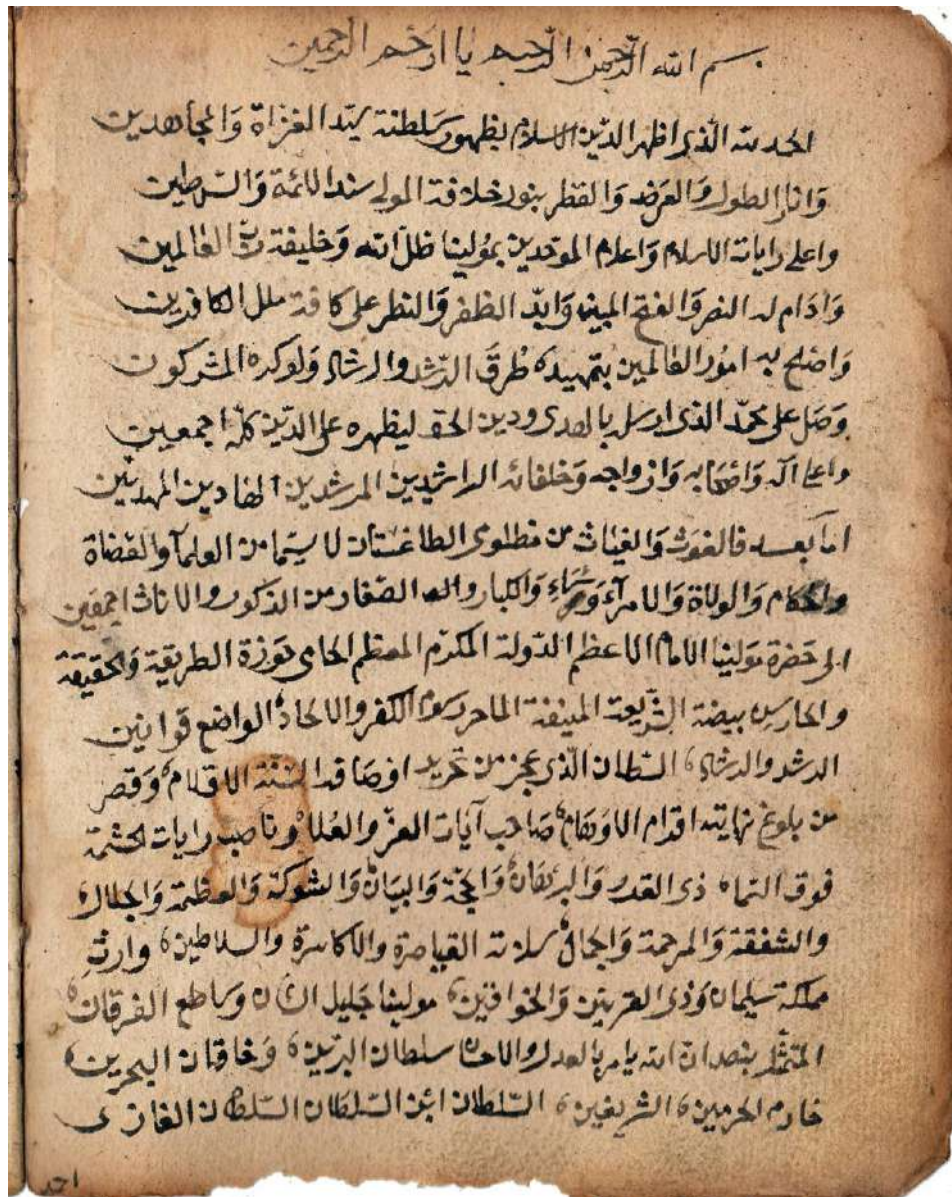 بسم الله الرحمن الرحيم يا ارحم الرحمين
الحمد لله الذى اظهر الدين الاسلام بظهور سلطنة سيد الغزاة وَالمجاهدين
وَانار الطول وَالعَرض وَالقطر بنور خلافة المولى سند الائمة وَالسلاطين
واعلى رايات الاسلام وَاعلام الموحدين بمُولينا ظل الله وَخليفة رب العٰالمين
وَادَام له النصر وَالفتح المبين وَابد الظفر وَالنظر على كافة ملل الكافرين
وَاصلح به امور العٰالمين بتمهيده طُرقَ الرّشد والرشاد وَلوكره المشركون
وَصَل على محمّد الذى ارسل بالهدى ودين الحق ليظهره على الدّين كلّه اجمعين
واعلى آله وَاصحابه وَازواجه وَخلفائه الراشدين المرشدين الهادين المهديّين
امّا بعد فالغوث وَالغياث من مظلومى الطاغستان لا سيّما من العلمآ والقضاة
والحكام وَالولاة وَالامرآء وَالكبار والصّغار من الذكور والاناث اجمعين
الى حَضرة مَولينا الامام الاعظم الدّولة المكرّم المعظم الحامى حَوزة الطريقة وَالحقيقة
والحارس بيضة الشّريعة المنيفة الماحى رسوم الكفر والالحاد الواضع قوانين
الرشد والرشاد السّلطان الّذى عجز من تحرير اوصافه السنة الاقلام وَقصر
من بلوغ نهايته اقدام الاوهام صَاحب آيات العزّ والعُلا وناصب رايات الحشمة
فوق السّماء ذى القدر وَالبرهان وَالحجّة وَالبيان وَالشوكة وَالعظمة وَالجلال
والشفقة وَالمرحمة وَالجمال سلالة القياصرة والاكاسرة والسلاطين وارث
مملكة سليمان وَذى القرنين وَالخواقين مولينا جَليل الشان وساطع الفرقان
المتمثّل بنص ان الله يامر بالعدل والاحسان سلطان البرّين وَخاقان البحرين
خادم الحرمين الشريفين السّلطان ابن السّلطان السّلطان الغازى
احمد